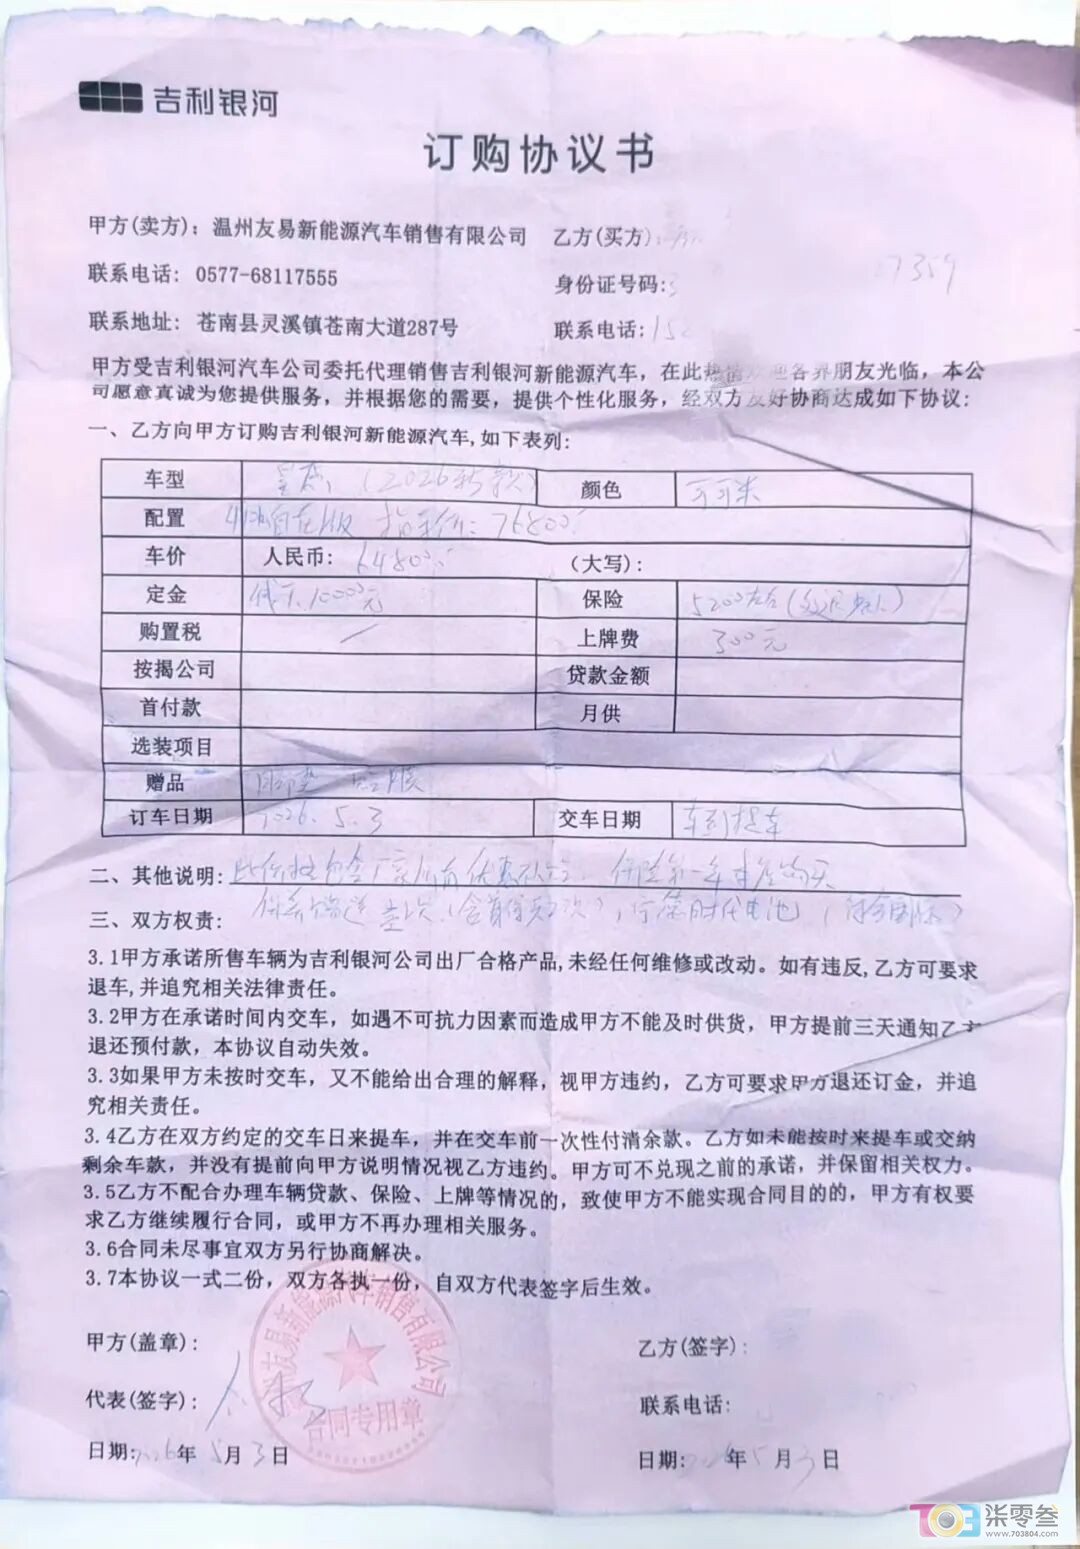 吉利银河
订购协议书
甲方(卖方)：温州友易新能源汽车销售有限公司 乙方(买方)：
联系电话：0577-68117555 身份证号码: 7359
联系地址：苍南县灵溪镇苍南大道287号 联系电话:15
甲方受吉利银河汽车公司委托代理销售吉利银河新能源汽车，在此热情欢迎各界朋友光临，本公
司愿意真诚为您提供服务，并根据您的需要，提供个性化服务，经双方友好协商达成如下协议：
一、乙方向甲方订购吉利银河新能源汽车,如下表列：
车型 星愿 (2026新款) 颜色 可可米
配置 指导价：76800
车价 人民币：64800 （大写）：
定金 10000元 保险 5200左右
购置税 / 上牌费 300元
按揭公司 贷款金额
首付款 月供
选装项目
赠品 脚垫
订车日期 2026.5.3 交车日期 车到提车
二、其他说明: 此价格包含厂家所有优惠 保险第一年
宁德时代电池
三、双方权责：
3.1甲方承诺所售车辆为吉利银河公司出厂合格产品,未经任何维修或改动。如有违反,乙方可要求
退车,并追究相关法律责任。
3.2甲方在承诺时间内交车，如遇不可抗力因素而造成甲方不能及时供货，甲方提前三天通知乙方
退还预付款，本协议自动失效。
3.3如果甲方未按时交车，又不能给出合理的解释，视甲方违约，乙方可要求甲方退还订金，并追
究相关责任。
3.4乙方在双方约定的交车日来提车，并在交车前一次性付清余款。乙方如未能按时来提车或交纳
剩余车款，并没有提前向甲方说明情况视乙方违约。甲方可不兑现之前的承诺，并保留相关权力。
3.5乙方不配合办理车辆贷款、保险、上牌等情况的，致使甲方不能实现合同目的的，甲方有权要
求乙方继续履行合同，或甲方不再办理相关服务。
3.6合同未尽事宜双方另行协商解决。
3.7本协议一式二份，双方各执一份，自双方代表签字后生效。
甲方(盖章)： 乙方(签字)：
友易新能源汽车销售有限公司
合同专用章
代表(签字)： 联系电话：
日期:2026年5月3日 日期:2026年5月3日
703 柒零叁
www.703804.com